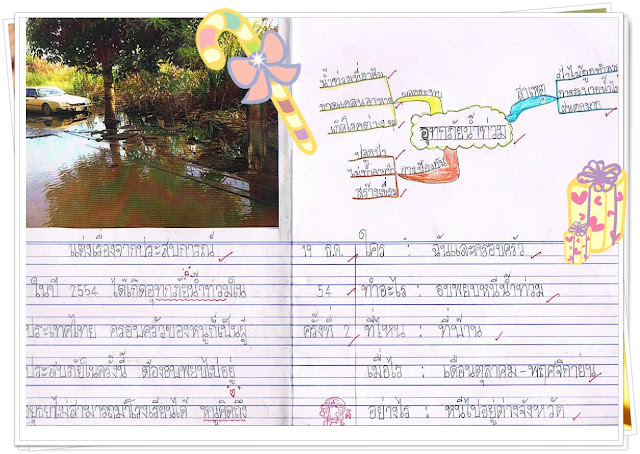 น้ำท่วมที่อาศัย
ขาดแคลนอาหาร
เกิดโรคต่างๆ
ผลกระทบ
อุทกภัยน้ำท่วม
สาเหตุ
ป่าไม้ถูกทำลาย
ฝนตกหนัก
ปลูกป่า
ไม่ทำลายป่า
สร้างเขื่อน
การป้องกัน
แต่งเรื่องจากประสบการณ์
ในปี 2554 ได้เกิดอุทกภัยน้ำท่วมใน
ประเทศไทย ครอบครัวของหนูก็เป็นผู้
ประสบภัยในครั้งนี้ ต้องอพยพไปอยู่
ไม่สามารถมาโรงเรียนได้ หนูคิดถึง
19 ธ.ค. ใคร : ฉันและครอบครัว
54 ทำอะไร : อพยพหนีน้ำท่วม
ครั้งที่ 2 ที่ไหน : ที่บ้าน
เมื่อไร : เดือนตุลาคม - พฤศจิกายน
อย่างไร : หนีไปอยู่ต่างจังหวัด